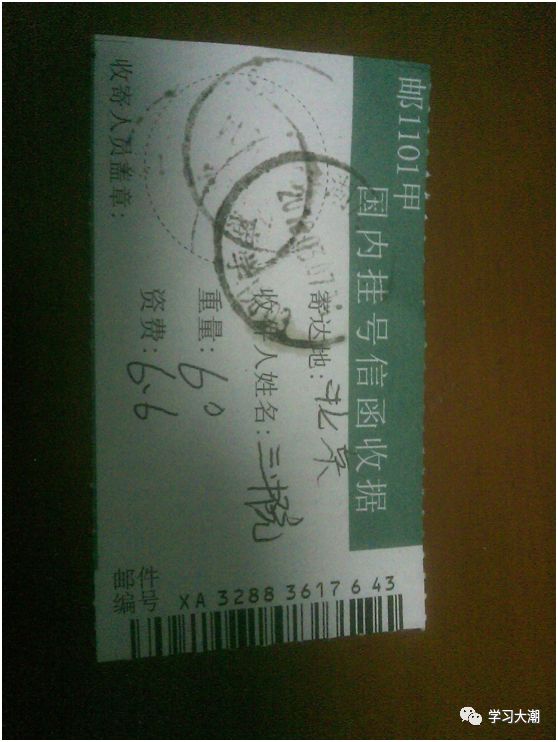 邮1101甲
国内挂号信函收据
寄达地：北京
收件人姓名：三院
重量：60
资费：6.6
收寄人员盖章：
邮件
编号
XA 3288 3617 6 43
学习大潮